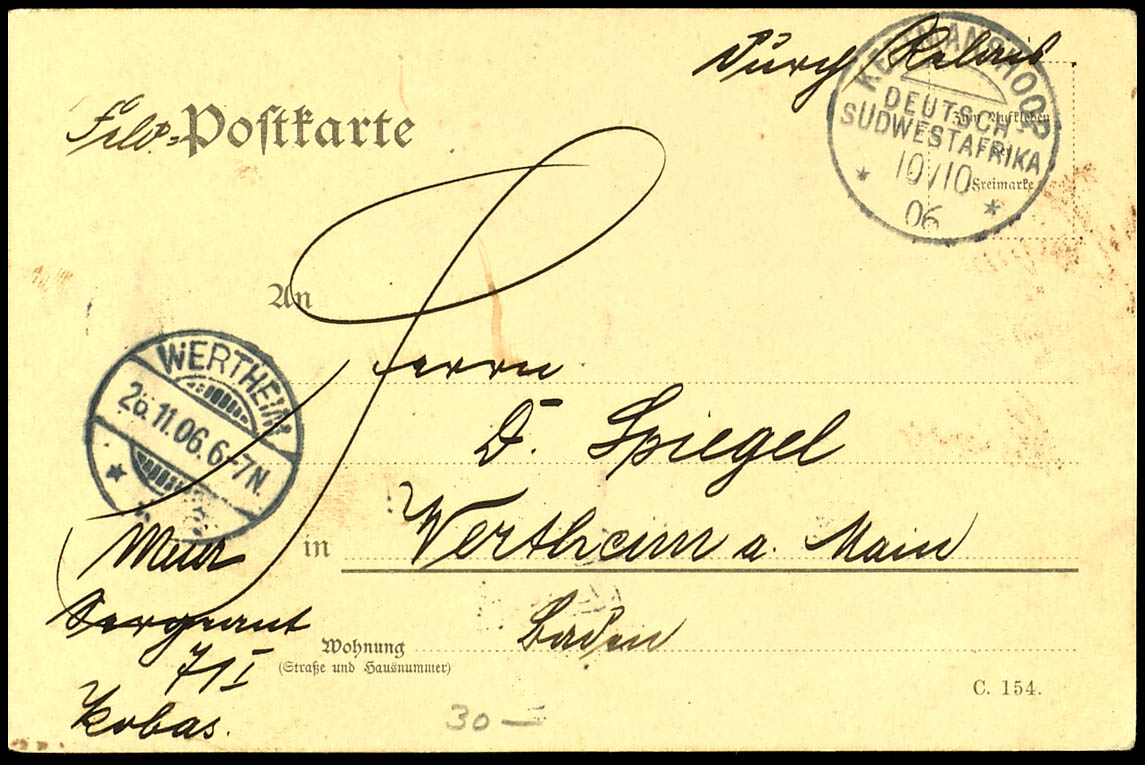 Durch Relais.
KEETMANSHOOP
DEUTSCH-
SÜDWESTAFRIKA
10/10
06
Zum Aufkleben
der
Freimarke
Feld-Postkarte
An
Herrn
D. Spiegel
WERTHEIM
26.11.06.6-7N.
in Wertheim a. Main
Baden
Meier
Sergeant
7/I
Kobas.
Wohnung
(Straße und Hausnummer)
C. 154.
30 —